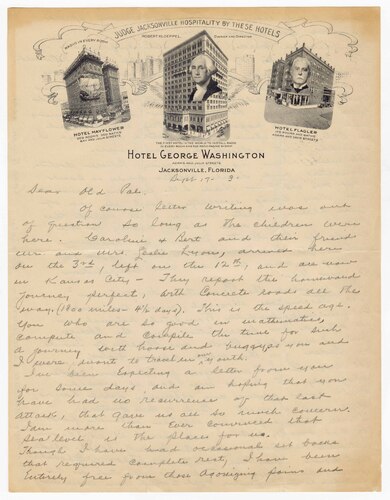 JUDGE JACKSONVILLE HOSPITALITY BY THESE HOTELS
RADIO IN EVERY ROOM
ROBERT KLOEPPEL
OWNER AND DIRECTOR
HOTEL MAYFLOWER
HOTEL FLAGLER
HOTEL GEORGE WASHINGTON
ADAMS AND JULIA STREETS
JACKSONVILLE, FLORIDA
Sept 17 - 3
Dear Old Pal.
Of course letter writing was out
of question so long as the children were
here. Caroline & Bert and their friend
Mr. and Mrs Leslie arrived here
on the 3rd, left on the 12th, and are now
in Kansas City - They report the homeward
journey perfect, with Concrete roads all the
way. (1800 miles 4½ days). This is the speed age.
You who are so good in mathematics,
compute and compile the time for such
a journey with horse and buggies you and
I were wont to travel in our youth.
I've been expecting a letter from you
for some days and am hoping that you
have had no recurrence of that last
attack, that gave us all so much concern.
I am more than ever convinced that
sea level is the place for us.
Though I have had occasional set backs
that required complete rest, I have been
entirely free from those agonizing pains and